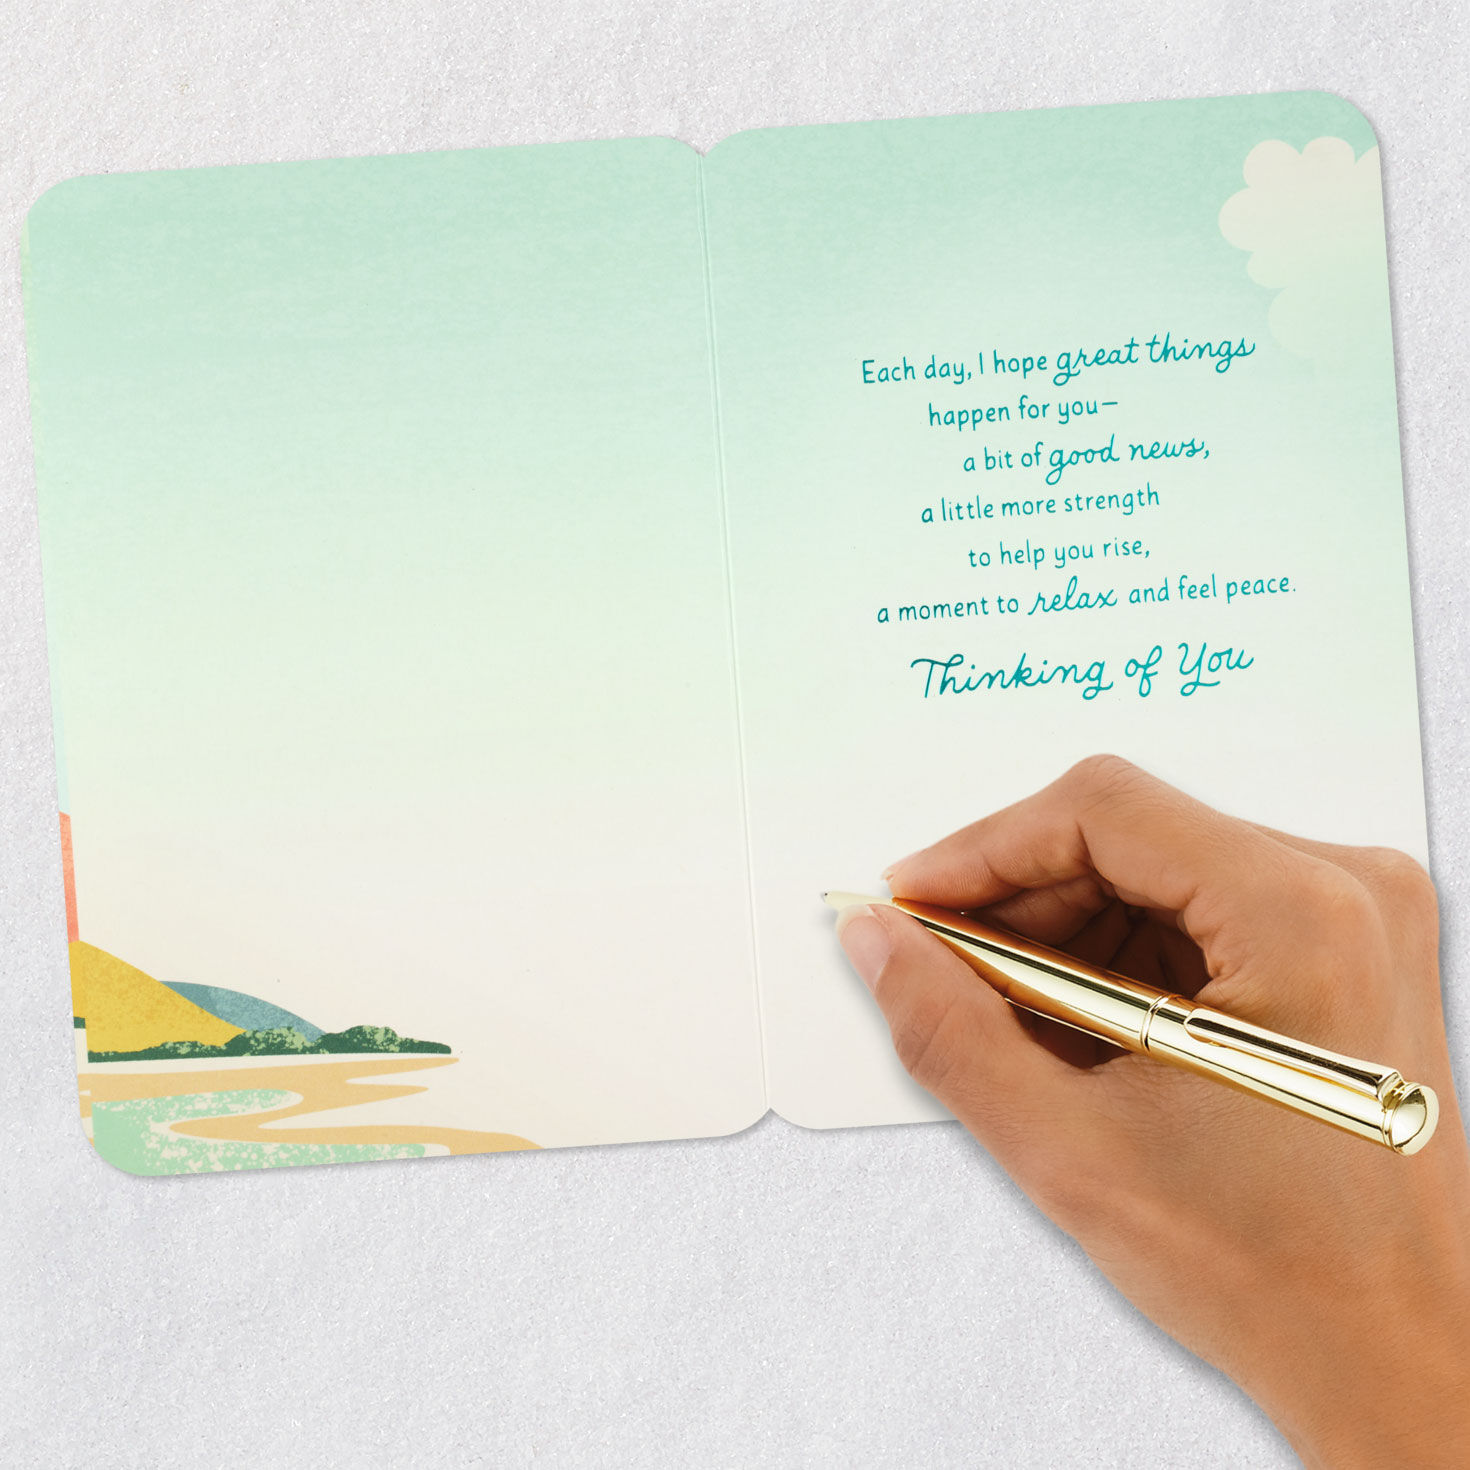 Each day, I hope great things
happen for you—
a bit of good news,
a little more strength
to help you rise,
a moment to relax and feel peace.
Thinking of You